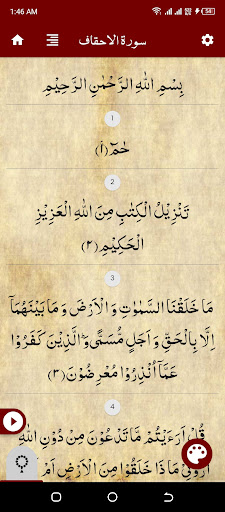 1:46 AM
54
سورة الاحقاف
بِسْمِ اللهِ الرَّحْمٰنِ الرَّحِيْمِ
1
حٰمٓ (١)
2
تَنْزِيْلُ الْكِتٰبِ مِنَ اللهِ الْعَزِيْزِ
الْحَكِيْمِ (٢)
3
مَا خَلَقْنَا السَّمٰوٰتِ وَالْاَرْضَ وَمَا بَيْنَهُمَاۤ
اِلَّا بِالْحَقِّ وَاَجَلٍ مُّسَمًّى ؕ وَالَّذِيْنَ كَفَرُوْا
عَمَّاۤ اُنْذِرُوْا مُعْرِضُوْنَ (٣)
4
قُلْ اَرَءَيْتُمْ مَّا تَدْعُوْنَ مِنْ دُوْنِ اللهِ
اَرُوْنِىْ مَاذَا خَلَقُوْا مِنَ الْاَرْضِ اَمْ